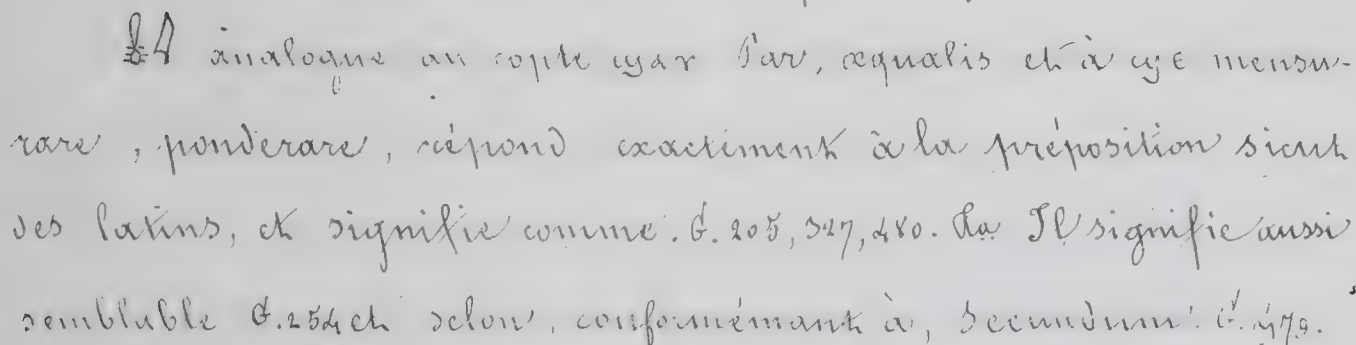 analogue au copte ϣⲁⲣ Par, æqualis et à ϣⲉ mensu-
rare, ponderare, répond exactement à la préposition sicut
des latins, et signifie comme. G. 205, 327, 480. Il signifie aussi
semblable G. 254 et selon, conformémant à, Secundum. G. 479.